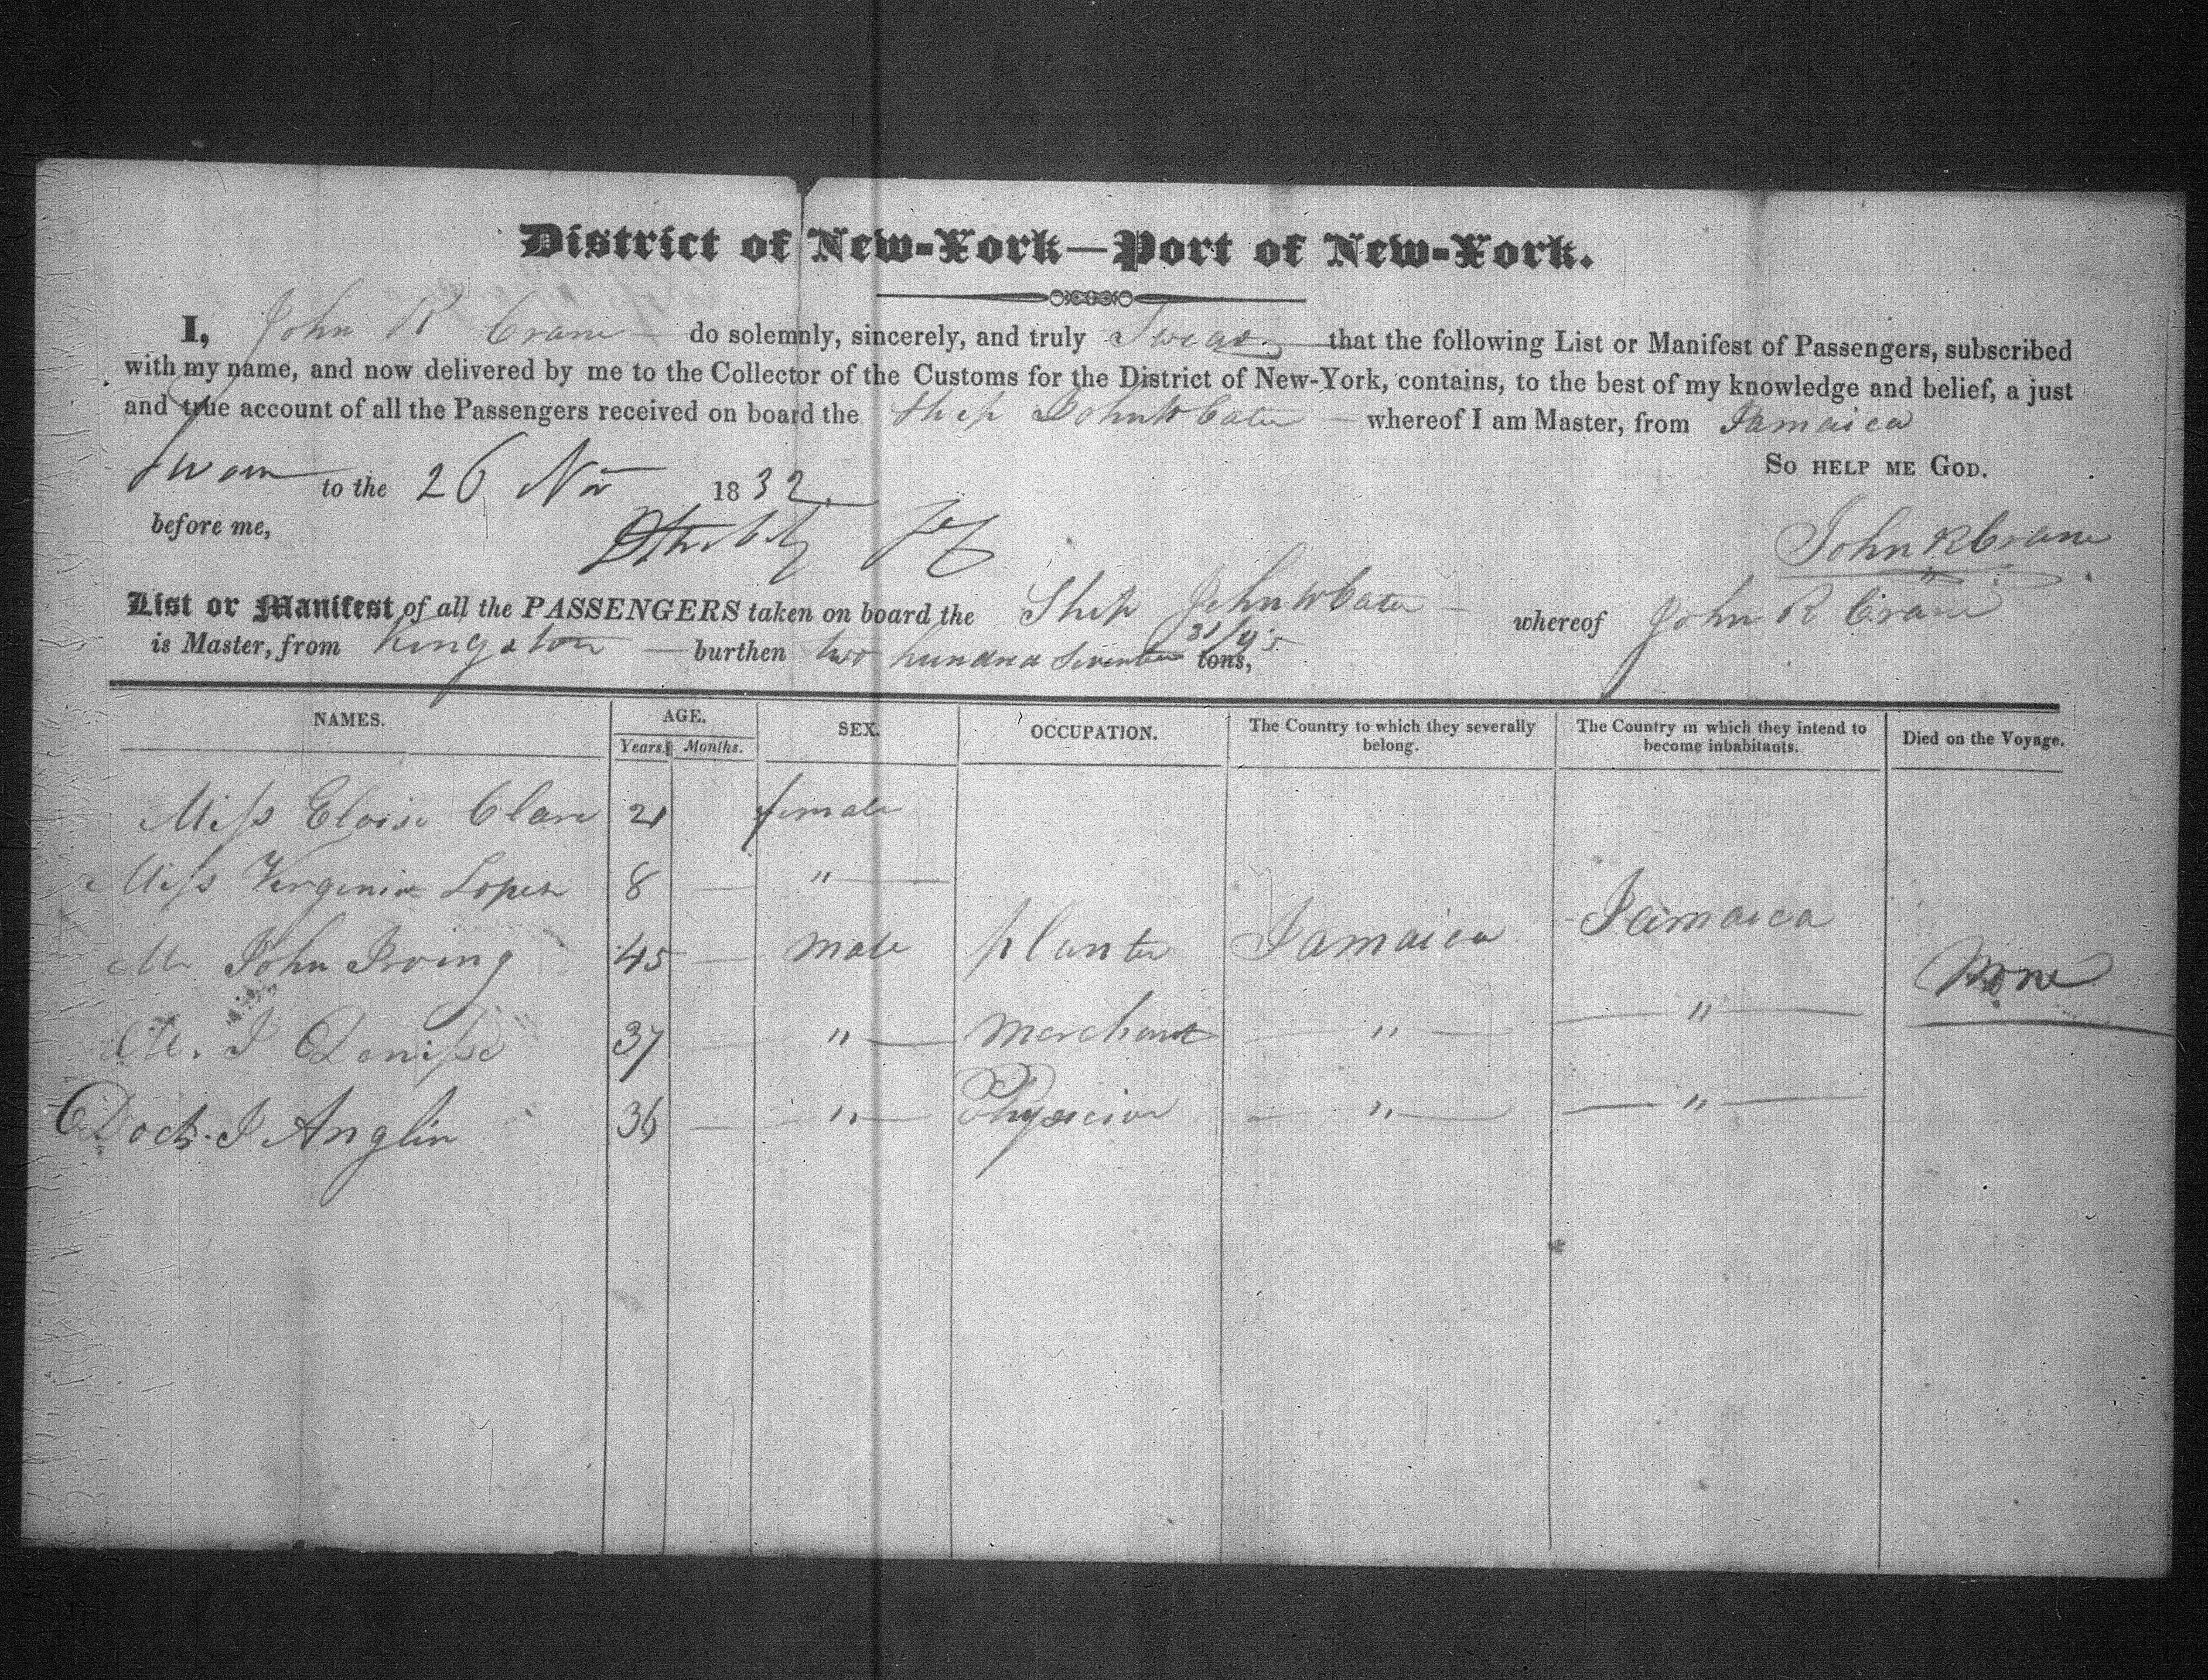 District of New-York—Port of New-York.
I, John R Crane do solemnly, sincerely, and truly Swear that the following List or Manifest of Passengers, subscribed
with my name, and now delivered by me to the Collector of the Customs for the District of New-York, contains, to the best of my knowledge and belief, a just
and true account of all the Passengers received on board the Ship John W Cater whereof I am Master, from Jamaica
So help me God.
Sworn to the 26 Nov 1832
before me,
John R Crane
List or Manifest of all the PASSENGERS taken on board the Ship John W Cater whereof John R Crane
is Master, from Kingston burthen two hundred 31/95 tons,
NAMES. AGE. SEX. OCCUPATION. The Country to which they severally belong. The Country in which they intend to become inhabitants. Died on the Voyage.
Years. Months.
Miss Eloise Clare 21 female
Miss Virginia Lopez 8 — " —
Mr John Irving 45 — male planter Jamaica Jamaica
None
M. J 37 — " — Merchant — " — — " —
Doct. J Anglin 36 — " — Physician — " — — " —